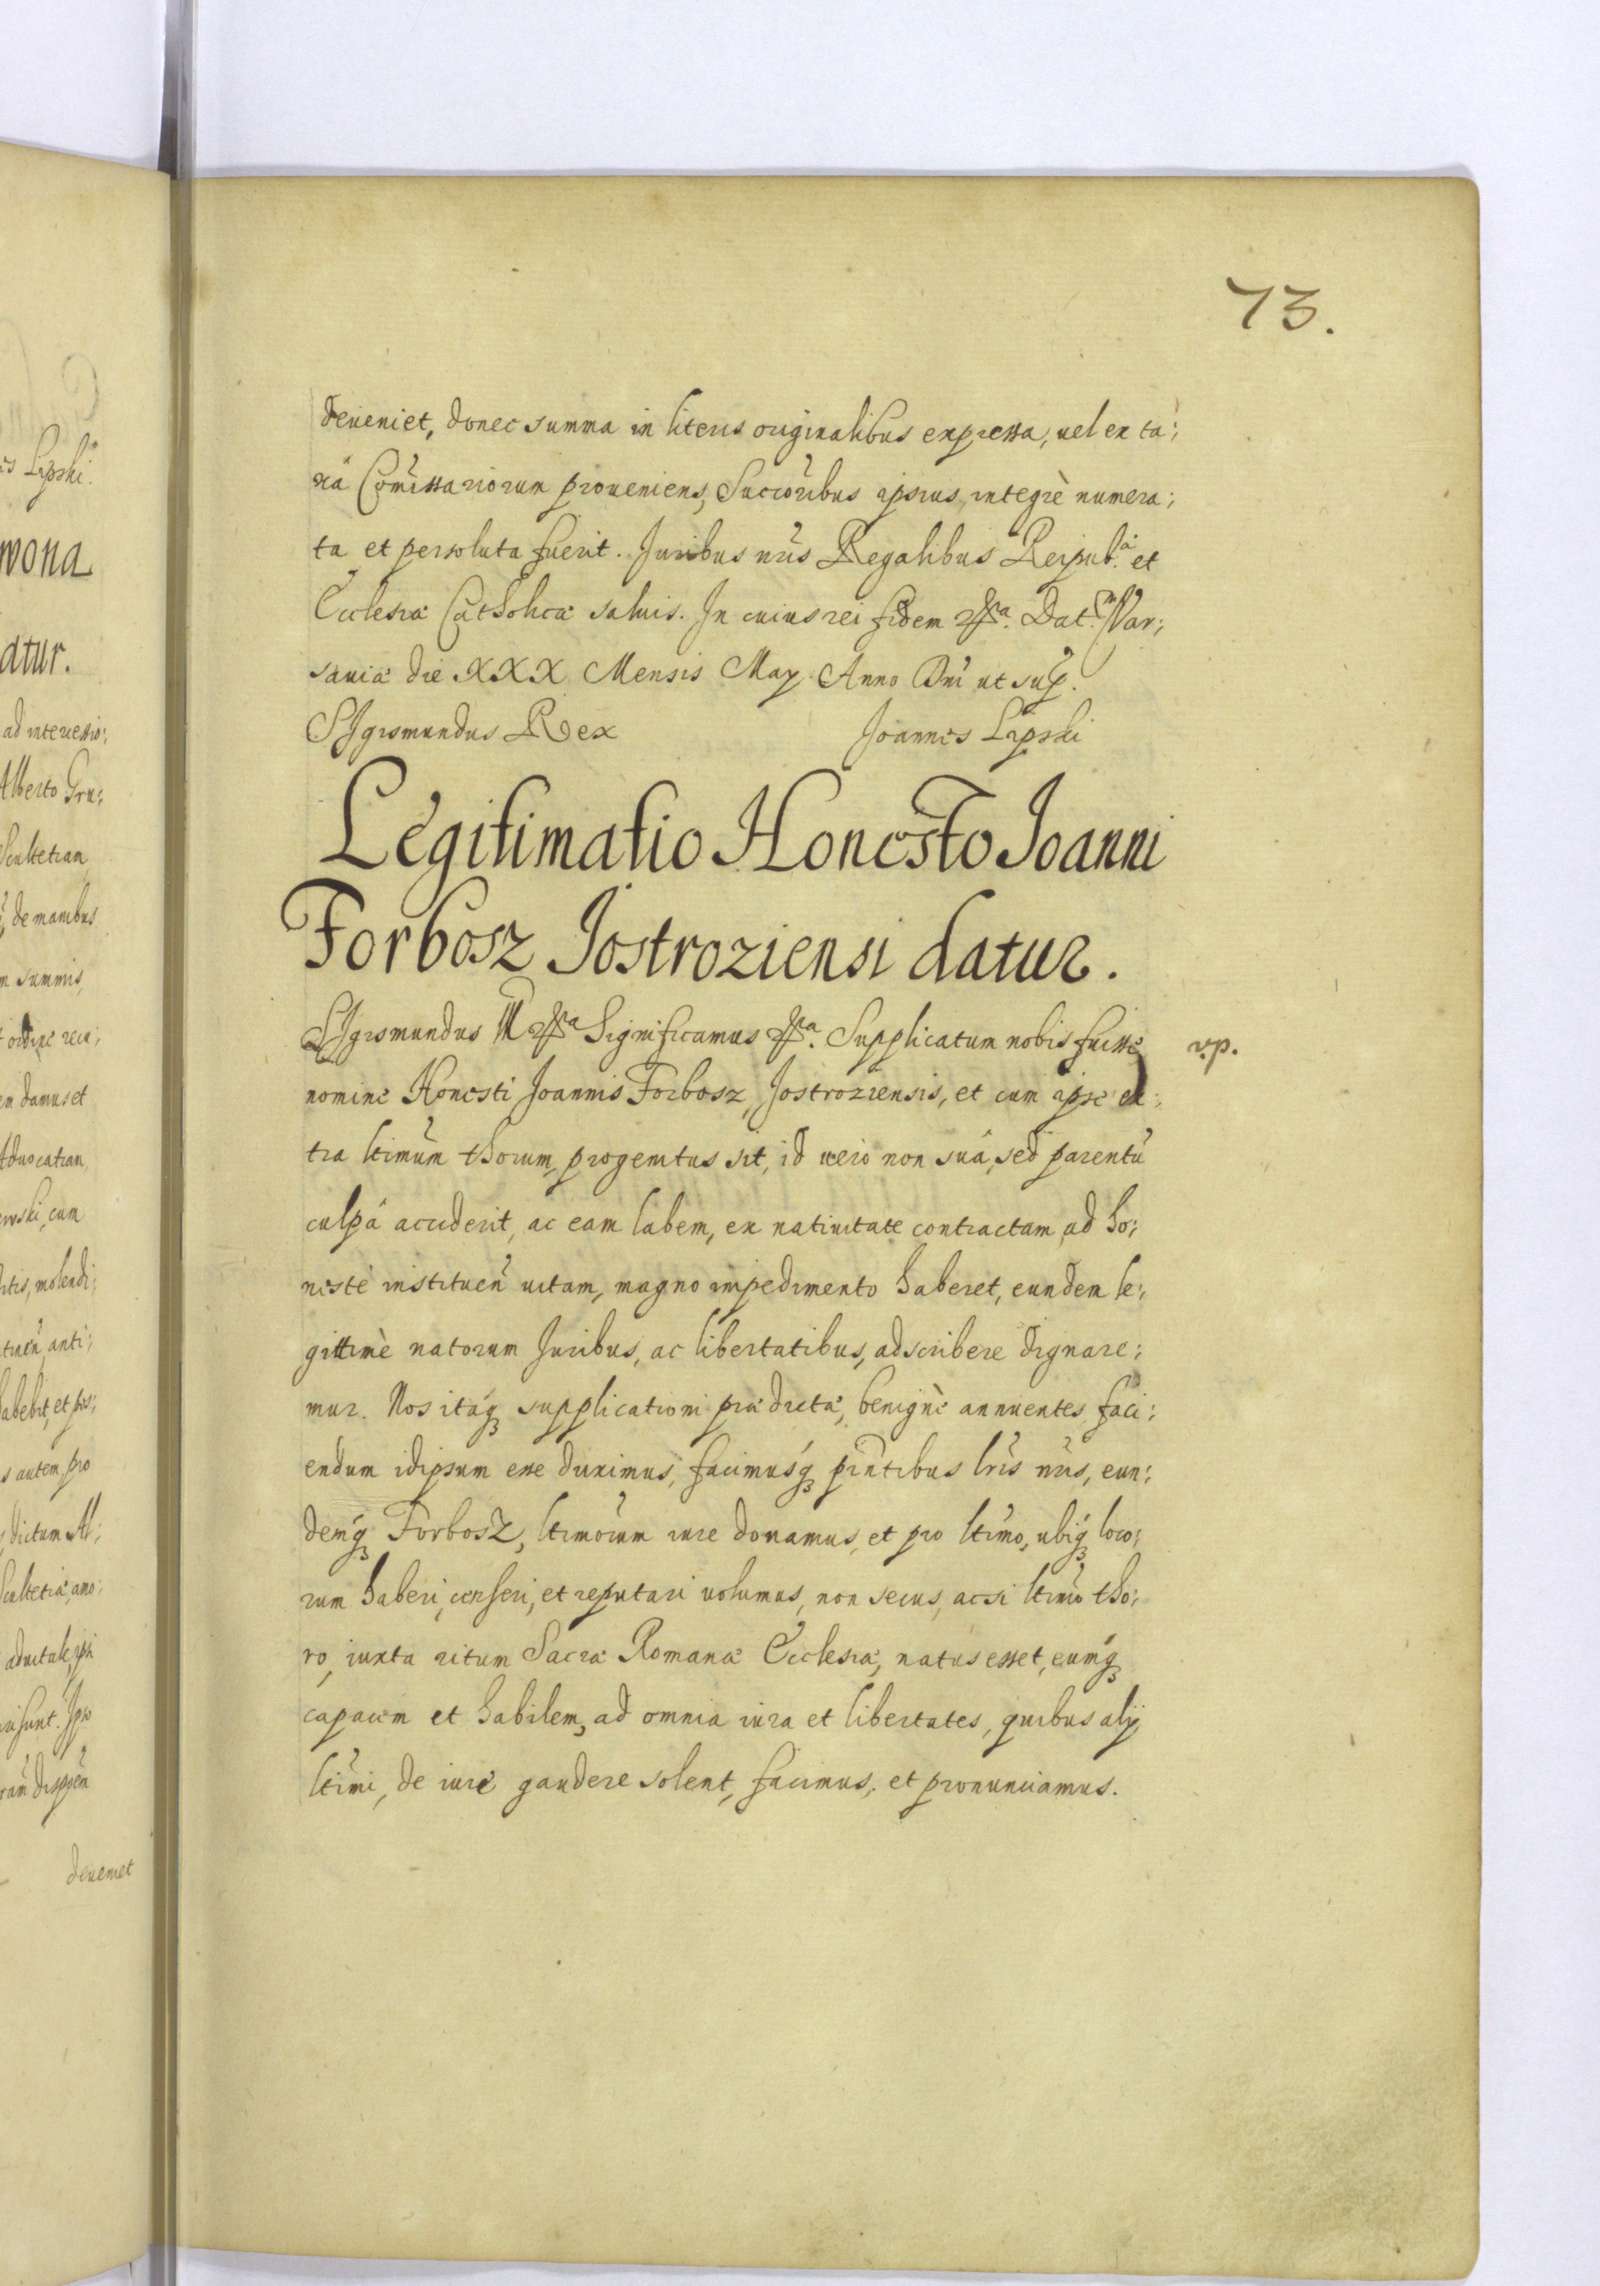 73.
deueniet, donec summa in literis originalibus expressa, uel ex ta;
xa Com̃issariorum proueniens, Succor̃ibus ipsius, integrè numera;
ta et persoluta fuerit. Juribus nr̃is Regalibus Reipub.ᵃ et
Ecclesiæ Catholicæ saluis. In cuius rei fidem Dat. Var;
sauiæ die XXX Mensis May Anno Dnĩ ut sup.
SIgismundus Rex Joannes Lipski
Legitimatio Honesto Joanni
Forbosz Jostroziensi datur.
SIgismundus III Significamus Supplicatum nobis fuisse
nomine Honesti Joannis Forbosz, Jostroziensis, et cum ipse ex;
tra ltimũm thorum, progenitus sit, id uero non suâ, sed parentũ
culpâ acciderit, ac eam labem, ex natiuitate contractam, ad ho;
nestè instituen̄ uitam, magno impedimento haberet, eundem le;
gittimè natorum Juribus, ac libertatibus, adscribere dignare;
mur. Nos itáq supplicationi prædictæ, benignè annuentes, faci;
endum idipsum esse duximus, facimusq́ pñtibus lr̃is nr̃is, eun;
demq́ Forbosz, ltimor̃um iure donamus, et pro ltimõ, ubiq́ loco;
rum haberi, censeri, et reputari uolumus, non secus, acsi ltimõ tho;
ro, iuxta ritum Sacræ Romanæ Ecclesiæ, natus esset, eumq́
capacem et habilem, ad omnia iura et libertates, quibus alij
ltimĩ, de iure gaudere solent, facimus, et pronunciamus.
s Lipski.
wona
atur.
ad intercessio;
Alberto Gru;
Scultetiam
de manibus
m summis,
en damus et
Aduocatiam,
ewski, cum
itis, molendi;
anti;
habebit, et pos;
s autem pro
dictum Al;
Scultetiæ, ano;
deueniet